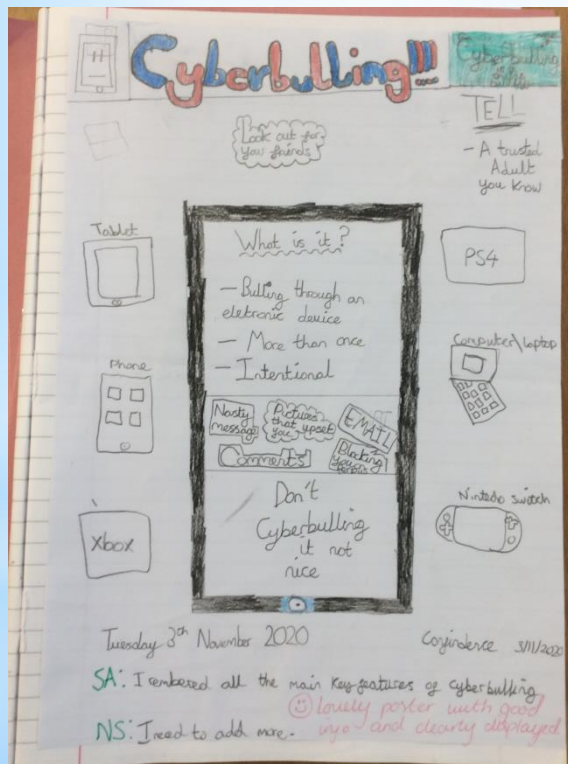 Cyberbulling!!!
Cyberbulling
TELL
- A trusted
Adult
you know
Look out for
you friends!
Tablet
Phone
Xbox
What is it?
- Bulling through an
eletronic device
- More than once
- Intentional
Nasty
message
Pictures
that upset
you
EMAIL
Comments
Blocking
you
Don't
Cyberbulling
it not
nice
PS4
Computer/laptop
Nintedo switch
Tuesday 3th November 2020
3/11/2020
SA: I rembered all the main key features of cyberbulling
☺ Lovely poster with good
info and clearly displayed
NS: I need to add more.